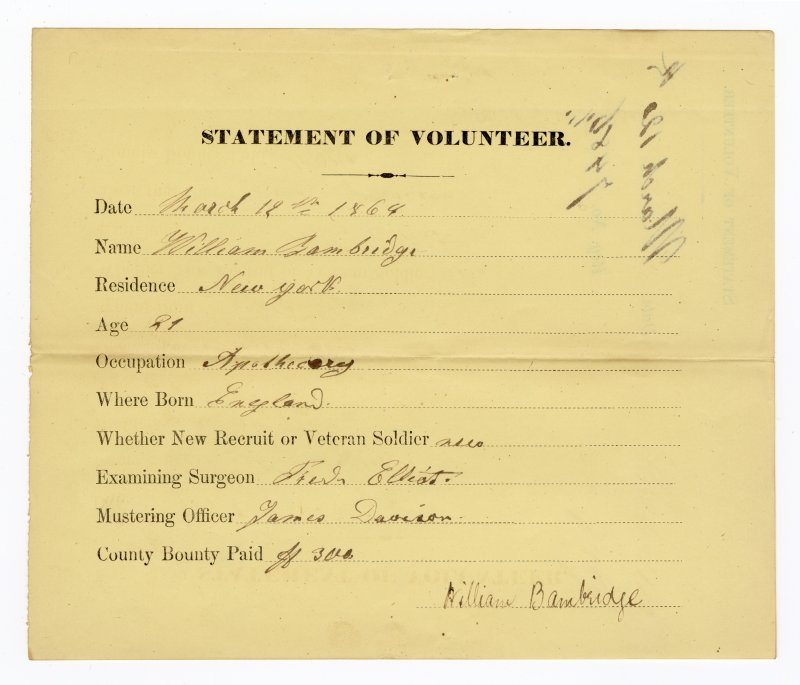 STATEMENT OF VOLUNTEER.
Date March 12th 1864
Name William Bambridge
Residence New york
Age 21
Occupation Apothecary
Where Born England.
Whether New Recruit or Veteran Soldier new
Examining Surgeon Fredk Elliot
Mustering Officer James Davison
County Bounty Paid $ 300
William Bambridge
March 12